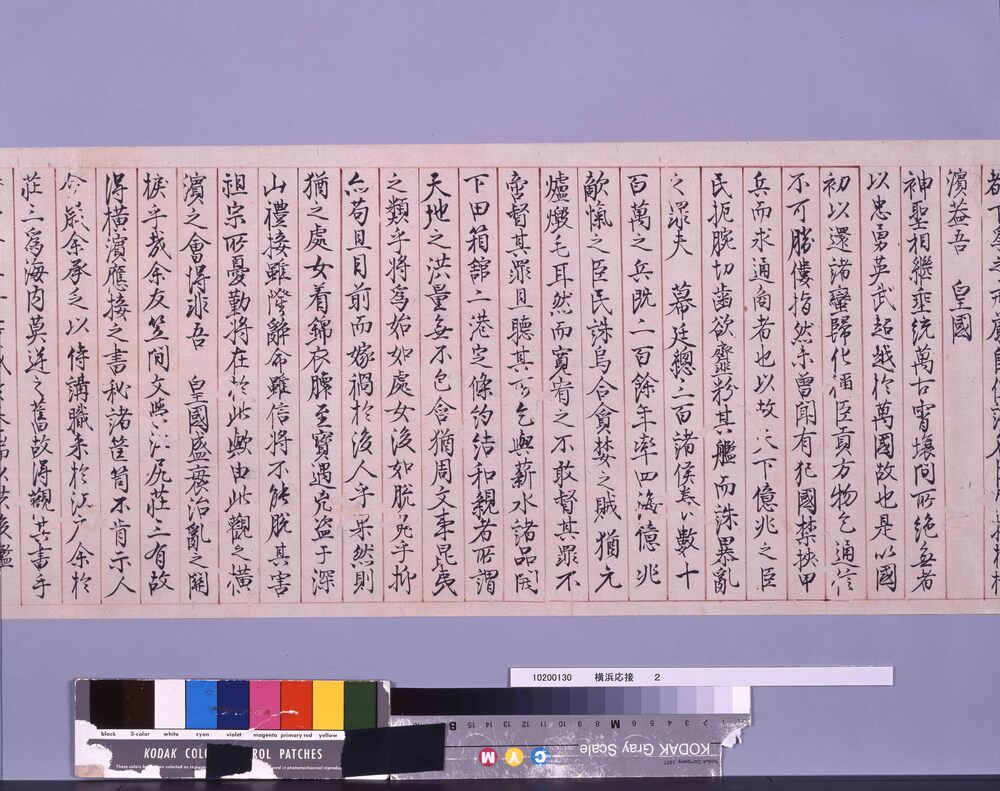 濱蓋吾　皇國
神聖相繼垂統萬古霄壤间所絶無者
以忠勇英武超越於萬國故也是以國
初以還諸蠻歸化酒臣貢方物乞通信
不可勝僂指然未曾聞有犯國禁挾甲
兵而求通商者也以故天下億兆之臣
民扼腕切齒欲虀粉其艦而誅暴亂
之罪夫　幕廷總二百諸侯養八數十
百萬之兵既二百餘年率四海億兆
敵愾之臣民誅烏合貪婪之賊猶元
爐燬毛耳然而寛宥之不敢督其罪不
啻督其罪且聽其所乞與薪水諸品開
下田箱舘二港定條約結和親者所謂
天地之洪量無不包含猶周文事昆夷
之類乎將爲始如處女後如脱兎乎抑
亦苟且目前而嫁禍於後人乎果然則
猶之處女着錦衣臃至寶遇兇盗于深
山禮接雖慇辭命雖信將不能脱其害
祖宗所憂勤將在於此歟由此觀之横
濱之會得非吾　皇國盛衰治亂之関
棙乎哉余友笠间文學江尻莊三有故
得横濱應接之書秘諸筐笥不肯示人
今茲余承乏以侍講職来於江戸余於
莊三爲海内莫逆之舊故得觀其書手
10200130　横浜応接　2
black 3-color white cyan violet magenta primary red yellow
KODAK COL ROL PATCHES
KODAK Gray Scale
M Y C